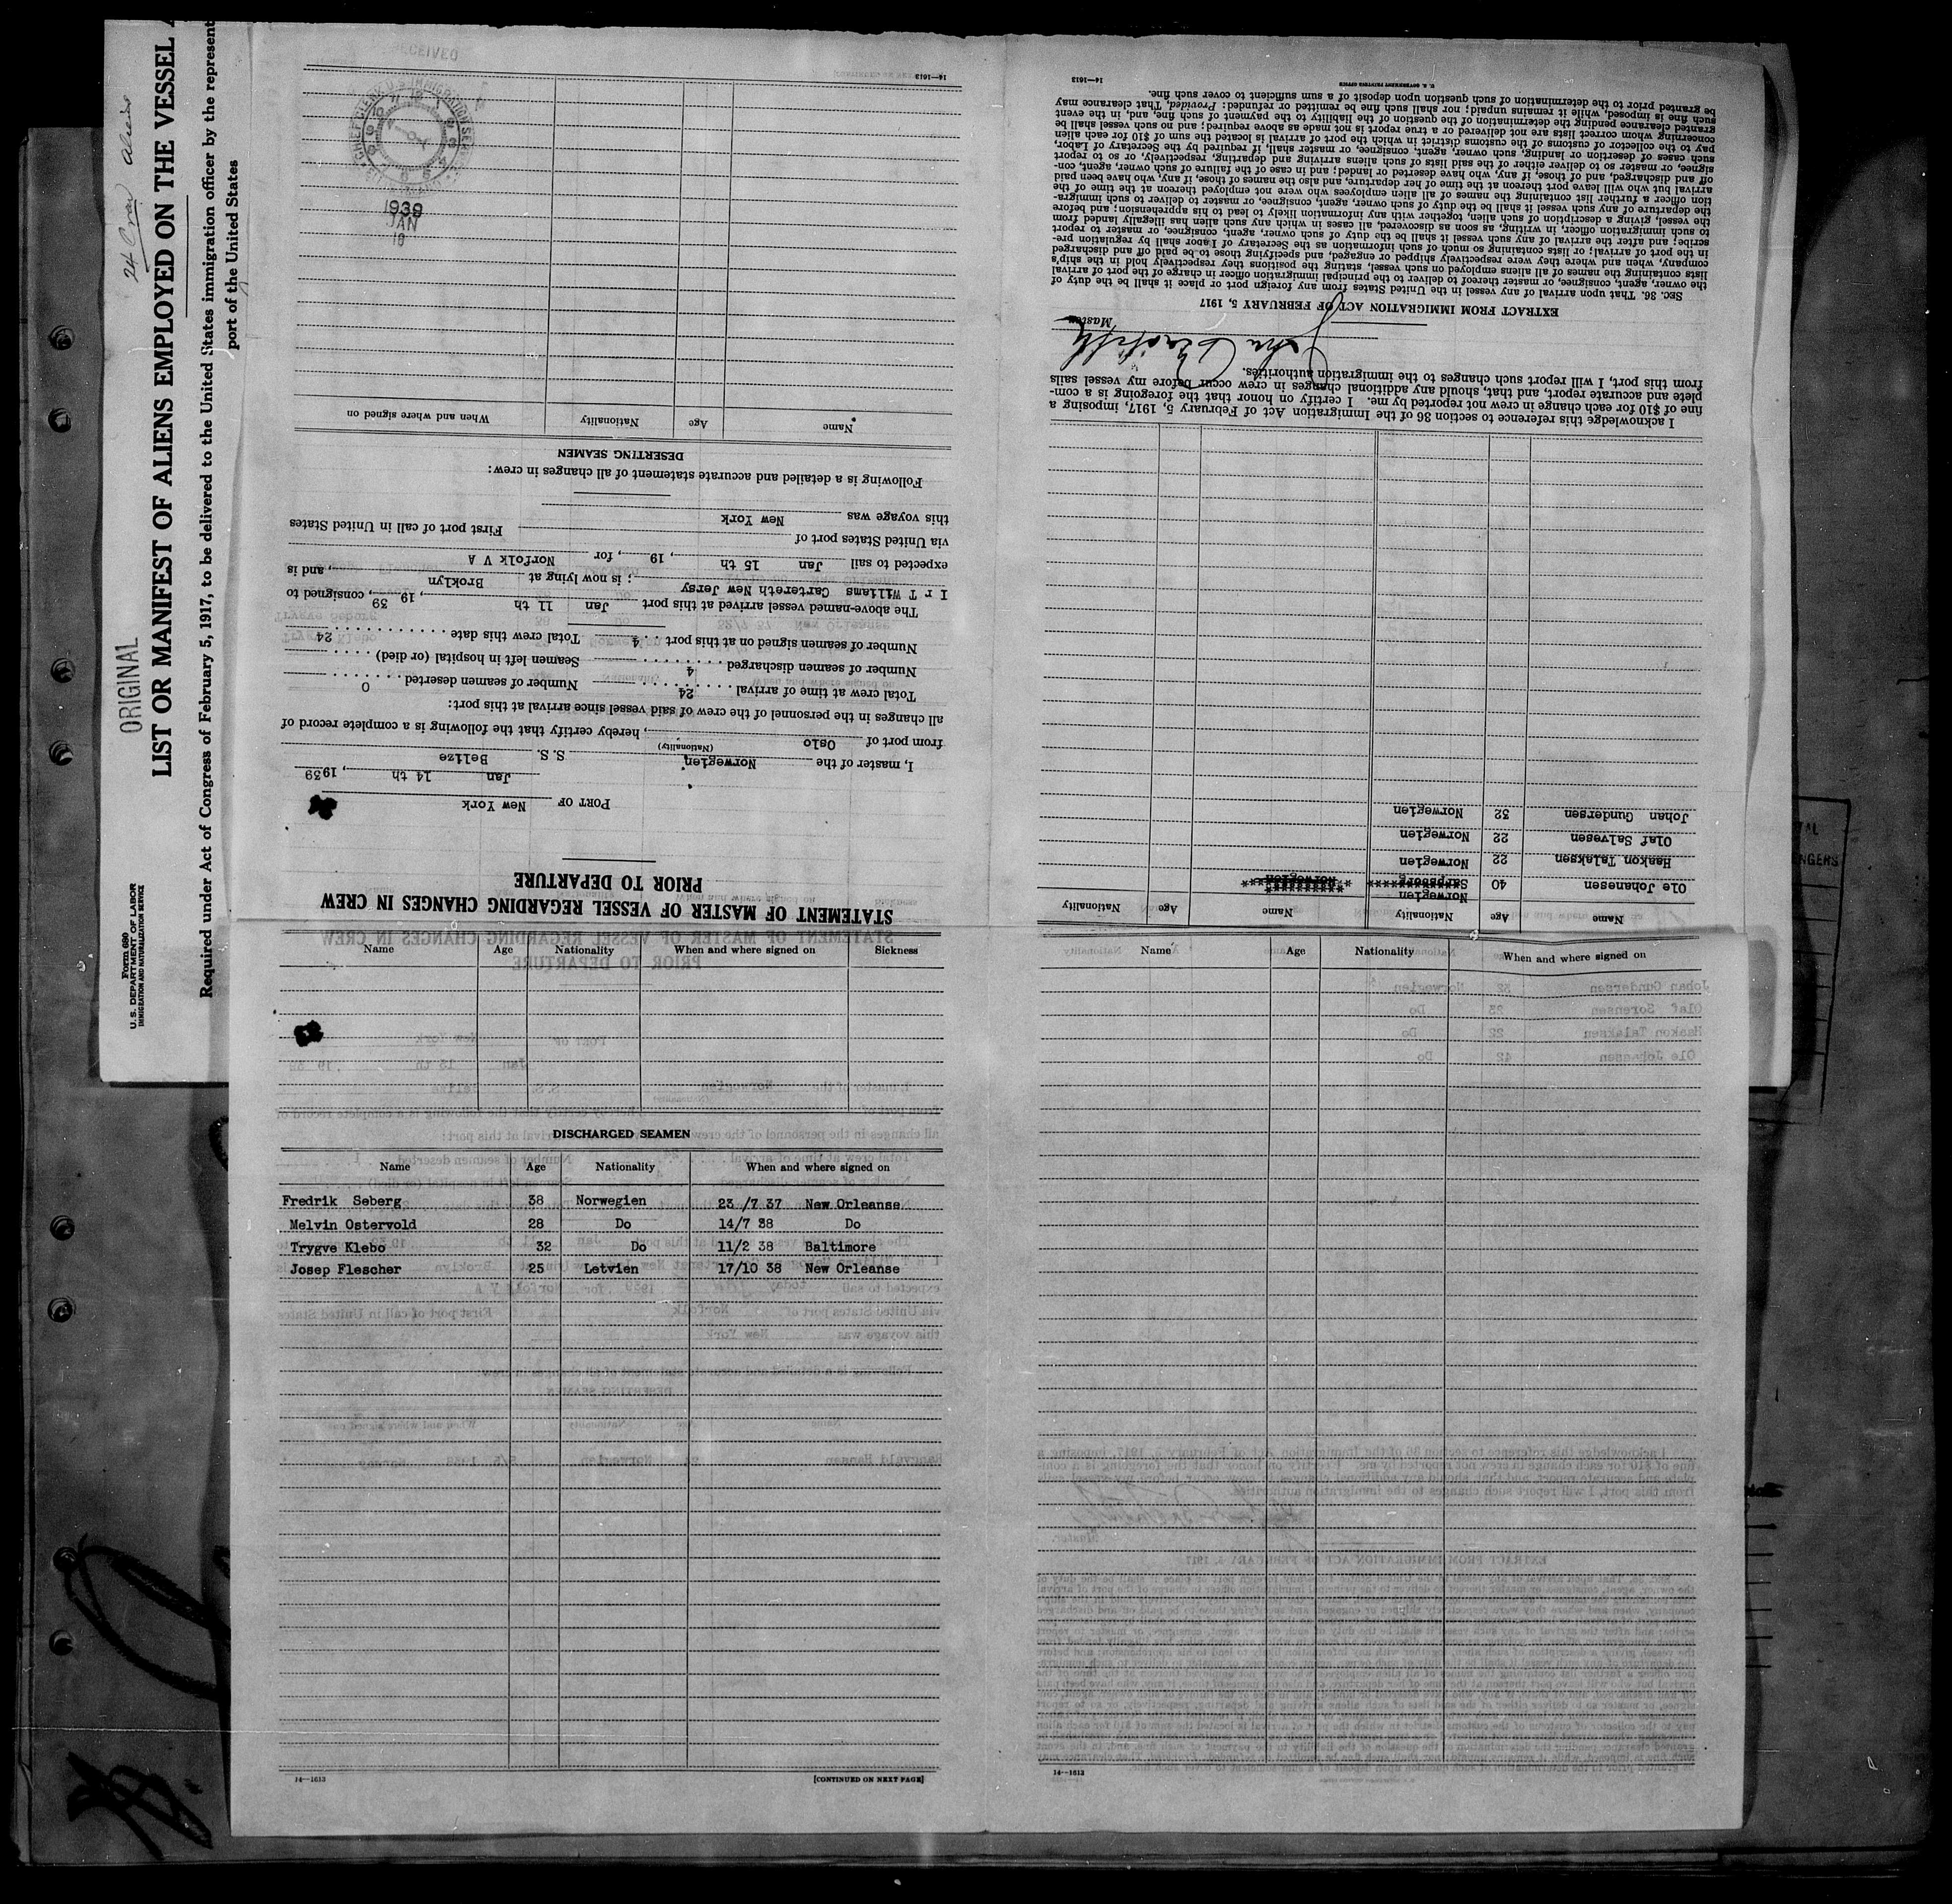 24 Crew Aliens
ORIGINAL
Form 680
U. S. DEPARTMENT OF LABOR
IMMIGRATION AND NATURALIZATION SERVICE
LIST OR MANIFEST OF ALIENS EMPLOYED ON THE VESSEL
Required under Act of Congress of February 5, 1917, to be delivered to the United States immigration officer by the represent
port of the United States
STATEMENT OF MASTER OF VESSEL REGARDING CHANGES IN CREW
PRIOR TO DEPARTURE
PORT OF New York
Jan 14 th, 1939
I, master of the Norwegien S. S. Belize
(Nationality)
from port of Oslo, hereby certify that the following is a complete record of
all changes in the personnel of the crew of said vessel since arrival at this port:
Total crew at time of arrival 24 Number of seamen deserted 0
Number of seamen discharged 4 Seamen left in hospital (or died)
Number of seamen signed on at this port 4 Total crew this date 24
The above-named vessel arrived at this port Jan 11 th, 19 39, consigned to
I r T Williams Cartereth New Jersy; is now lying at Broklyn, and is
expected to sail Jan 15 th, 19, for Norfolk V A
via United States port of First port of call in United States
this voyage was New York
Following is a detailed and accurate statement of all changes in crew:
DESERTING SEAMEN
Name Age Nationality When and where signed on
14—1613
RECEIVED
1939
JAN
Name Age Nationality When and where signed on Sickness
DISCHARGED SEAMEN
Name Age Nationality When and where signed on
Fredrik Seberg 38 Norwegien 23 /7 37 New Orleanse
Melvin Ostervold 28 Do 14/7 38 Do
Trygve Klebo 32 Do 11/2 38 Baltimore
Josep Flescher 25 Letvien 17/10 38 New Orleanse
14—1613 [CONTINUED ON NEXT PAGE]
Name Age Nationality When and where signed on
14—1613
Name Age Nationality Name Age Nationality
Norwegien
Ole Johanesen 40
Haakon Talaksen 22 Norwegien
Olaf Salvesen 22 Norwegien
Johan Gundersen 32 Norwegien
I acknowledge this reference to section 36 of the Immigration Act of February 5, 1917, imposing a
fine of $10 for each change in crew not reported by me. I certify on honor that the foregoing is a com-
plete and accurate report, and that, should any additional changes in crew occur before my vessel sails
from this port, I will report such changes to the immigration authorities.
Master
EXTRACT FROM IMMIGRATION ACT OF FEBRUARY 5, 1917
SEC. 36. That upon arrival of any vessel in the United States from any foreign port or place it shall be the duty of
the owner, agent, consignee, or master thereof to deliver to the principal immigration officer in charge of the port of arrival
lists containing the names of all aliens employed on such vessel, stating the positions they respectively hold in the ship's
company, when and where they were respectively shipped or engaged, and specifying those to be paid off and discharged
in the port of arrival; or lists containing so much of such information as the Secretary of Labor shall by regulation pre-
scribe; and after the arrival of any such vessel it shall be the duty of such owner, agent, consignee, or master to report
to such immigration officer, in writing, as soon as discovered, all cases in which any such alien has illegally landed from
the vessel, giving a description of such alien, together with any information likely to lead to his apprehension; and before
the departure of any such vessel it shall be the duty of such owner, agent, consignee, or master to deliver to such immigra-
tion officer a further list containing the names of all alien employees who were not employed thereon at the time of the
arrival but who will leave port thereon at the time of her departure, and also the names of those, if any, who have been paid
off and discharged, and of those, if any, who have deserted or landed; and in case of the failure of such owner, agent, con-
signee, or master so to deliver either of the said lists of such aliens arriving and departing, respectively, or so to report
such cases of desertion or landing, such owner, agent, consignee, or master shall, if required by the Secretary of Labor,
pay to the collector of customs of the customs district in which the port of arrival is located the sum of $10 for each alien
concerning whom correct lists are not delivered or a true report is not made as above required; and no such vessel shall be
granted clearance pending the determination of the question of the liability to the payment of such fine, and, in the event
such fine is imposed, while it remains unpaid; nor shall such fine be remitted or refunded: Provided, That clearance may
be granted prior to the determination of such question upon deposit of a sum sufficient to cover such fine.
U. S. GOVERNMENT PRINTING OFFICE
14—1613